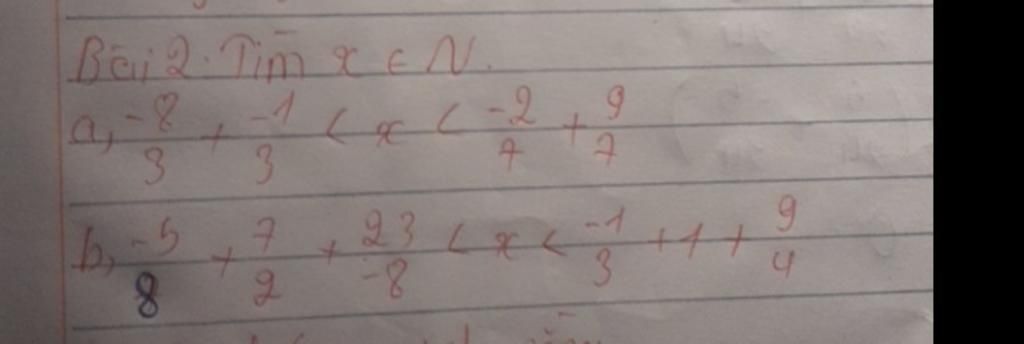 Bài 2. Tìm x ∈ N.
a, -8/3 + -1/3 < x < -2/7 + 9/7
b, -5/8 + 7/2 + 23/-8 < x < -1/3 + 1 + 9/4